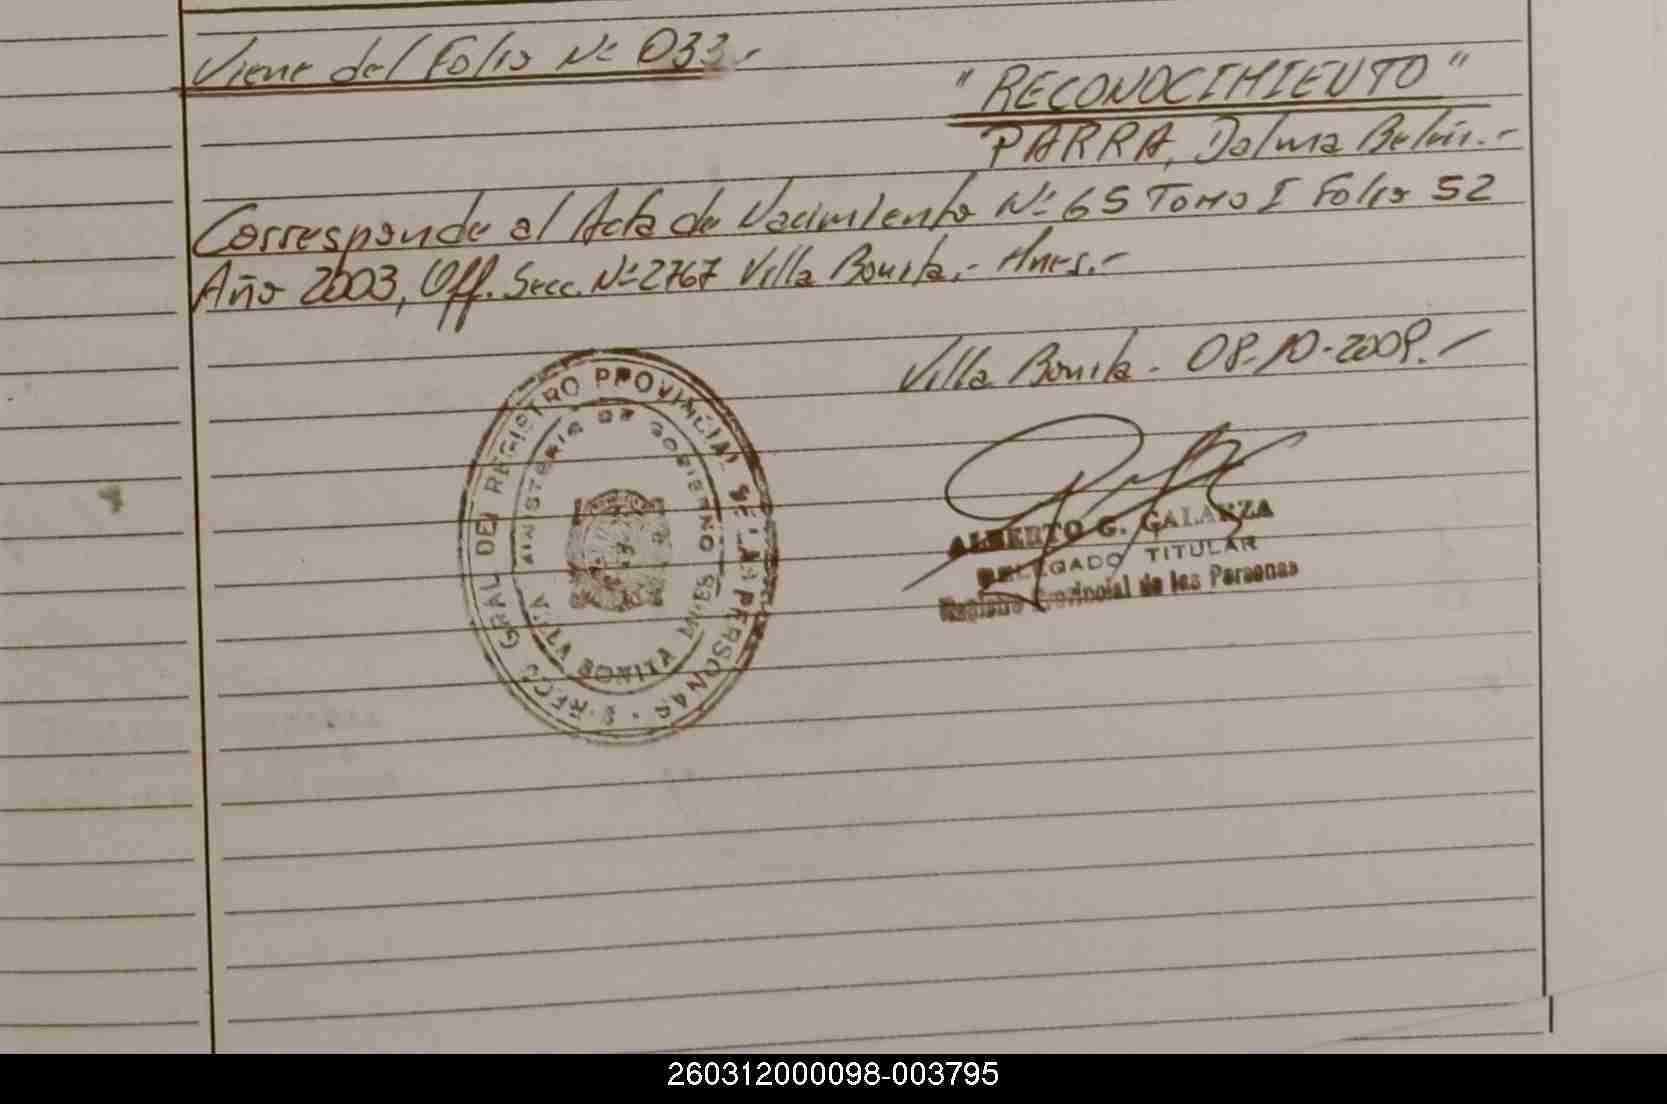 Viene del Folio Nº 033.-
"RECONOCIMIENTO"
PARRA, Dalma Belén.-
Corresponde al Acta de Nacimiento Nº 65 Tomo I Folio 52
Año 2003, Off. Secc. Nº 2767 Villa Bonita.- Mnes.-
Villa Bonita. 08-10-2009.-
GRAL DEL REGISTRO PROVINCIAL DE LAS PERSONAS
MINISTERIO DE GOBIERNO
VILLA BONITA MNES
ALBERTO G. GALARZA
DELEGADO TITULAR
Registro Provincial de las Personas
260312000098-003795